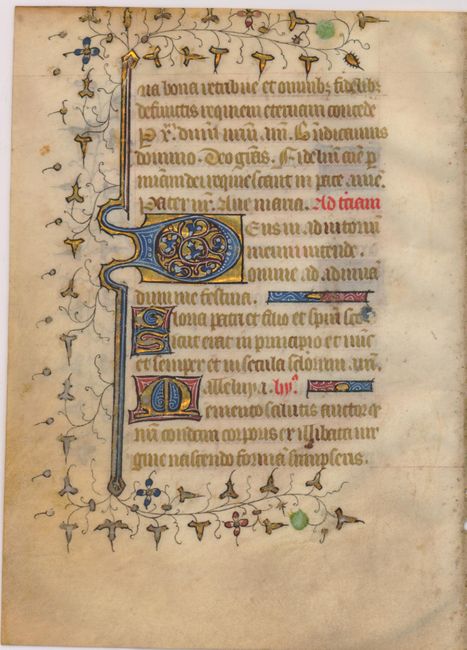 na bona retribue et omnibꝫ fidelibꝫ
defunctis requiem eternam concede
P xp̄m dn̄m nr̄m. am̄. Bn̄dicamus
domino. Deo gr̄as. Fideliū aīe per
miam dei requiescant in pace. amē.
Pater nr̄. Aue maria. Ad t̄ciam
Deus in adiutoriū
meum intende.
Domine ad adiuuā
dum me festina.
Gloria patri et filio et spiri scō
Sicut erat in principio et nūc
et semper et in secula sc̄lorum. am̄.
Alleluya. hyꝰ
Memento salutis auctor qꝫ
nr̄i condam corporis ex illibata uir
gine nascendo formā sumpseris.